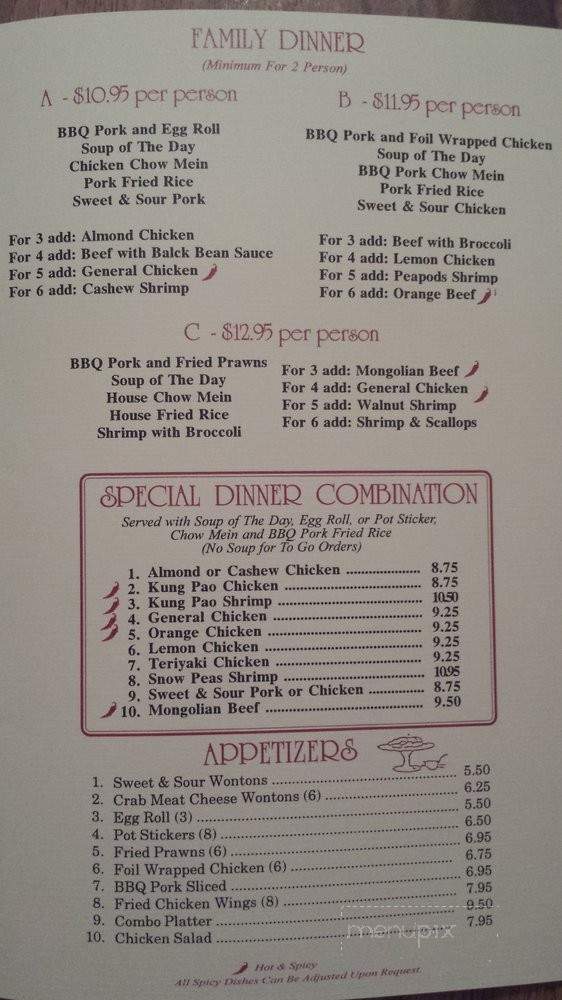 FAMILY DINNER
(Minimum For 2 Person)
A - $10.95 per person
BBQ Pork and Egg Roll
Soup of The Day
Chicken Chow Mein
Pork Fried Rice
Sweet & Sour Pork
For 3 add: Almond Chicken
For 4 add: Beef with Balck Bean Sauce
For 5 add: General Chicken
For 6 add: Cashew Shrimp
B - $11.95 per person
BBQ Pork and Foil Wrapped Chicken
Soup of The Day
BBQ Pork Chow Mein
Pork Fried Rice
Sweet & Sour Chicken
For 3 add: Beef with Broccoli
For 4 add: Lemon Chicken
For 5 add: Peapods Shrimp
For 6 add: Orange Beef
C - $12.95 per person
BBQ Pork and Fried Prawns
Soup of The Day
House Chow Mein
House Fried Rice
Shrimp with Broccoli
For 3 add: Mongolian Beef
For 4 add: General Chicken
For 5 add: Walnut Shrimp
For 6 add: Shrimp & Scallops
SPECIAL DINNER COMBINATION
Served with Soup of The Day, Egg Roll, or Pot Sticker,
Chow Mein and BBQ Pork Fried Rice
(No Soup for To Go Orders)
1. Almond or Cashew Chicken ........ 8.75
2. Kung Pao Chicken ........ 8.75
3. Kung Pao Shrimp ........ 10.50
4. General Chicken ........ 9.25
5. Orange Chicken ........ 9.25
6. Lemon Chicken ........ 9.25
7. Teriyaki Chicken ........ 9.25
8. Snow Peas Shrimp ........ 10.95
9. Sweet & Sour Pork or Chicken ........ 8.75
10. Mongolian Beef ........ 9.50
APPETIZERS
1. Sweet & Sour Wontons ........ 5.50
2. Crab Meat Cheese Wontons (6) ........ 6.25
3. Egg Roll (3) ........ 5.50
4. Pot Stickers (8) ........ 6.50
5. Fried Prawns (6) ........ 6.95
6. Foil Wrapped Chicken (6) ........ 6.75
7. BBQ Pork Sliced ........ 6.95
8. Fried Chicken Wings (8) ........ 7.95
9. Combo Platter ........ 9.50
10. Chicken Salad ........ 7.95
menupix
Hot & Spicy
All Spicy Dishes Can Be Adjusted Upon Request.